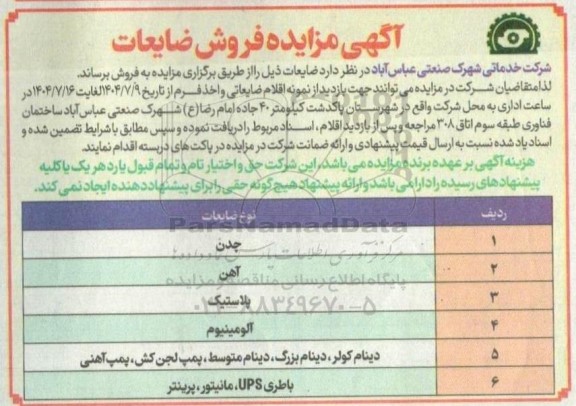 آگهی مزایده فروش ضایعات
شرکت خدماتی شهرک صنعتی عباس‌آباد در نظر دارد ضایعات ذیل را از طریق برگزاری مزایده به فروش برساند.
لذا متقاضیان شرکت در مزایده می توانند جهت بازدید از نمونه اقلام ضایعاتی و اخذ فرم از تاریخ ۱۴۰۴/۷/۹ لغایت ۱۴۰۴/۷/۱۶ در
ساعت اداری به محل شرکت واقع در شهرستان پاکدشت کیلومتر ۴۰ جاده امام رضا(ع) شهرک صنعتی عباس آباد ساختمان
فناوری طبقه سوم اتاق ۳۰۸ مراجعه و پس از بازدید اقلام ، اسناد مربوط را دریافت نموده و سپس مطابق با شرایط تضمین شده و
اسناد یاد شده نسبت به ارسال قیمت پیشنهادی و ارائه ضمانت شرکت در مزایده در پاکت های دربسته اقدام نمایند.
هزینه آگهی بر عهده برنده مزایده می باشد، این شرکت حق و اختیار تام و تمام قبول یا رد هر یک یا کلیه
پیشنهادهای رسیده را دارا می باشد و ارائه پیشنهاد هیچ گونه حقی را برای پیشنهاد دهنده ایجاد نمی کند.
ردیف نوع ضایعات
ParsNamadData
۱ چدن
مرکز فرآوری اطلاعات پارس نماد داده‌ها
۲ آهن
پایگاه اطلاع رسانی مناقصه و مزایده
۳ پلاستیک
۰۲۱-۸۸۳۴۹۶۷۰-۵
۴ آلومینیوم
۵ دینام کولر ، دینام بزرگ ، دینام متوسط ، پمپ لجن کش ، پمپ آهنی
۶ باطری UPS، مانیتور ، پرینتر